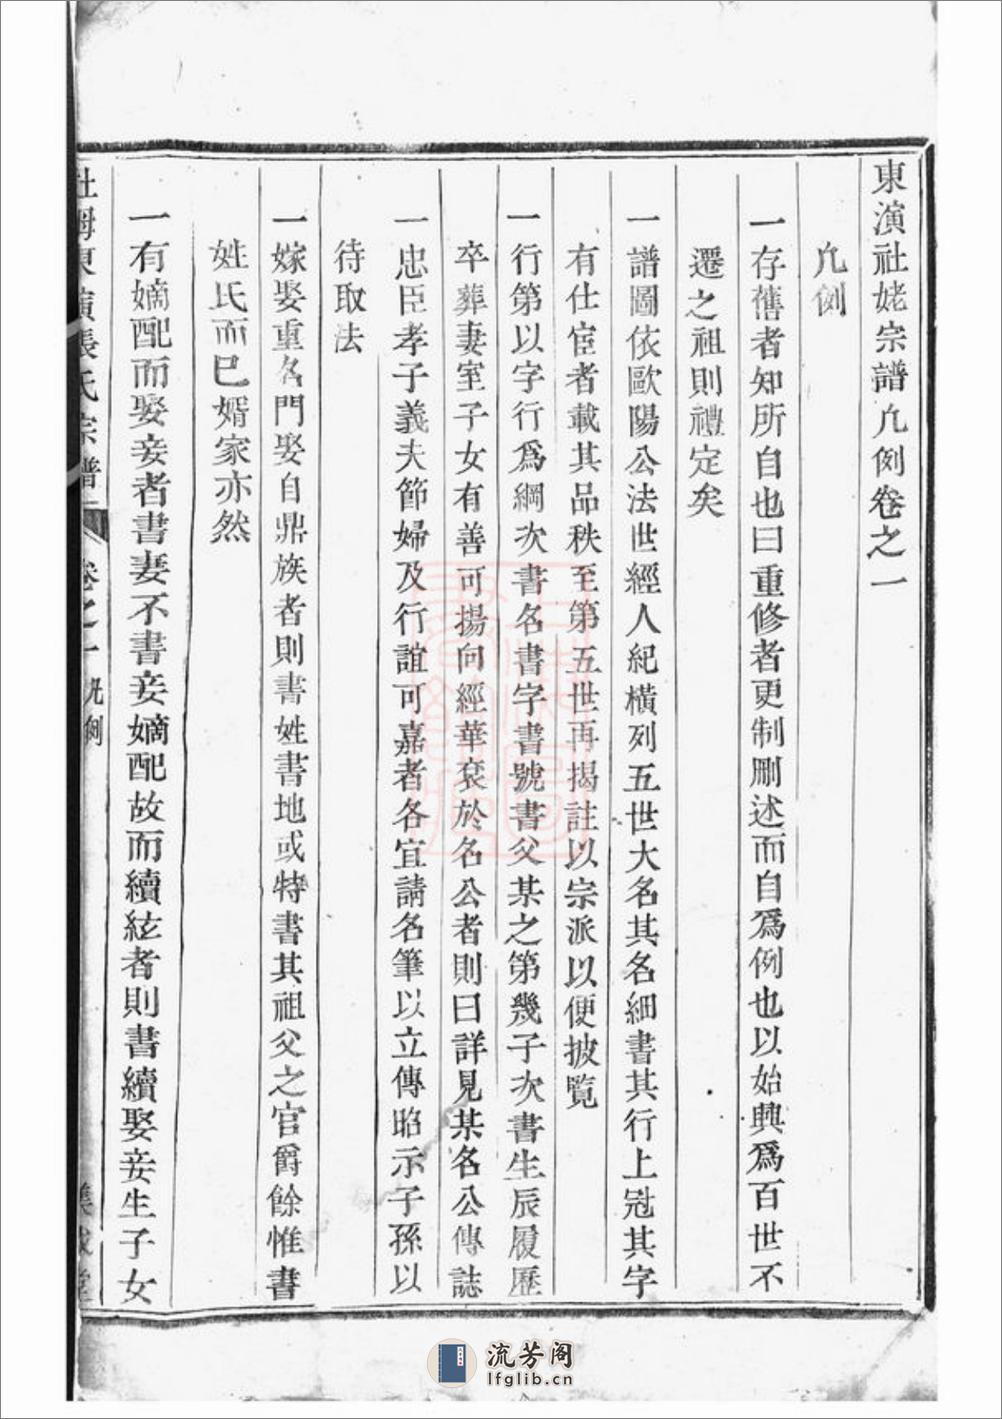 東演社姥宗譜凡例卷之一
凡例
一存舊者知所自也曰重修者更制刪述而自爲例也以始興爲百世不
遷之祖則禮定矣
一譜圖依歐陽公法世經人紀橫列五世大名其名細書其行上冠其字
有仕宦者載其品秩至第五世再揭註以宗派以便披覧
一行第以字行爲綱次書名書字書號書父某之第幾子次書生辰履歷
卒葬妻室子女有善可揚向經華袞於名公者則曰詳見某名公傳誌
一忠臣孝子義夫節婦及行誼可嘉者各宜請名筆以立傳昭示子孫以
待取法
一嫁娶重名門娶自鼎族者則書姓書地或特書其祖父之官爵餘惟書
姓氏而巳婿家亦然
一有嫡配而娶妾者書妻不書妾嫡配故而續絃者則書續娶妾生子女
社姆東演張氏宗譜 卷之一 凡例 集成堂
流芳阁
lfglib.cn